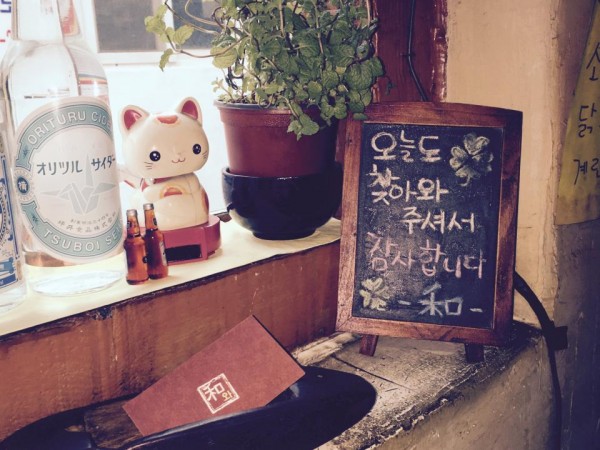 ORITURU CIDER
オリツル サイダー
TSUBOI SE
오늘도
찾아와
주셔서
감사합니다
-和-
和
와
소
닭
계란